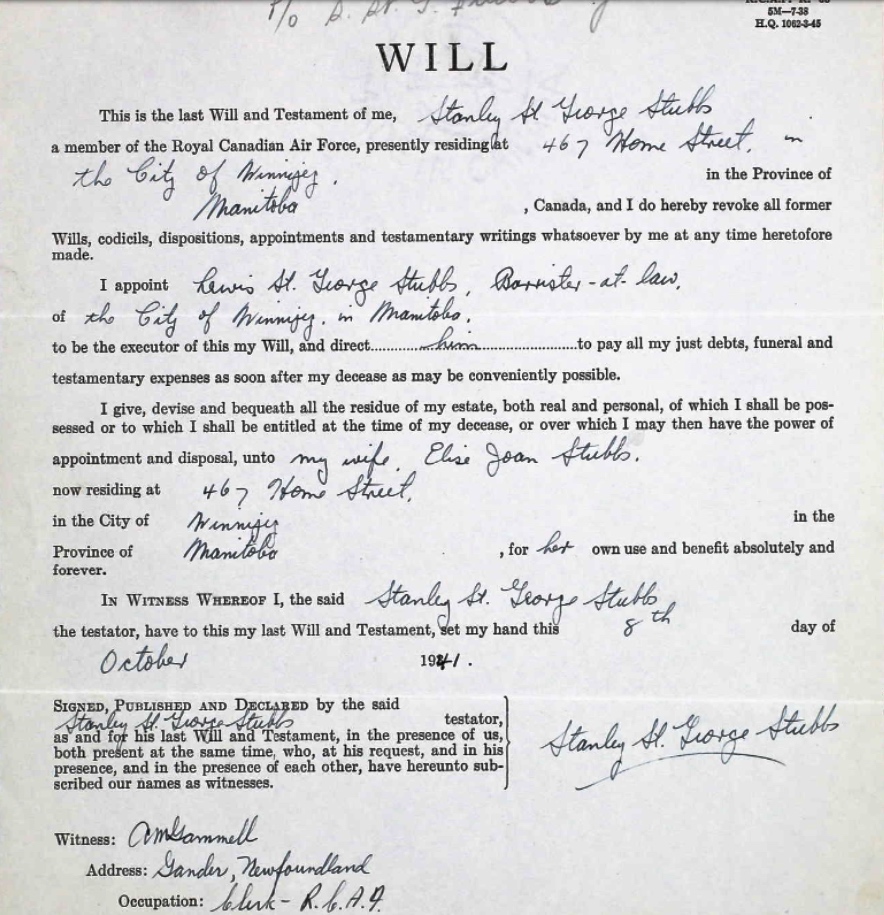 P/O S. St. G.
5M—7-38
H.Q. 1062-3-45
WILL
This is the last Will and Testament of me, Stanley St George Stubbs
a member of the Royal Canadian Air Force, presently residing at 467 Home Street, in
the City of Winnipeg, in the Province of
Manitoba, Canada, and I do hereby revoke all former
Wills, codicils, dispositions, appointments and testamentary writings whatsoever by me at any time heretofore
made.
I appoint Lewis St. George Stubbs, Barrister-at-law,
of the City of Winnipeg, in Manitoba,
to be the executor of this my Will, and direct..............him..............................to pay all my just debts, funeral and
testamentary expenses as soon after my decease as may be conveniently possible.
I give, devise and bequeath all the residue of my estate, both real and personal, of which I shall be pos-
sessed or to which I shall be entitled at the time of my decease, or over which I may then have the power of
appointment and disposal, unto my wife, Elise Joan Stubbs.
now residing at 467 Home Street,
in the City of Winnipeg in the
Province of Manitoba, for her own use and benefit absolutely and
forever.
IN WITNESS WHEREOF I, the said Stanley St. George Stubbs
the testator, have to this my last Will and Testament, set my hand this 8th day of
October 1941.
SIGNED, PUBLISHED AND DECLARED by the said
Stanley St. George Stubbs testator,
as and for his last Will and Testament, in the presence of us,
both present at the same time, who, at his request, and in his
presence, and in the presence of each other, have hereunto sub-
scribed our names as witnesses.
Stanley St. George Stubbs
Witness: AMGammell
Address: Gander, Newfoundland
Occupation: Clerk - R.C.A.F.